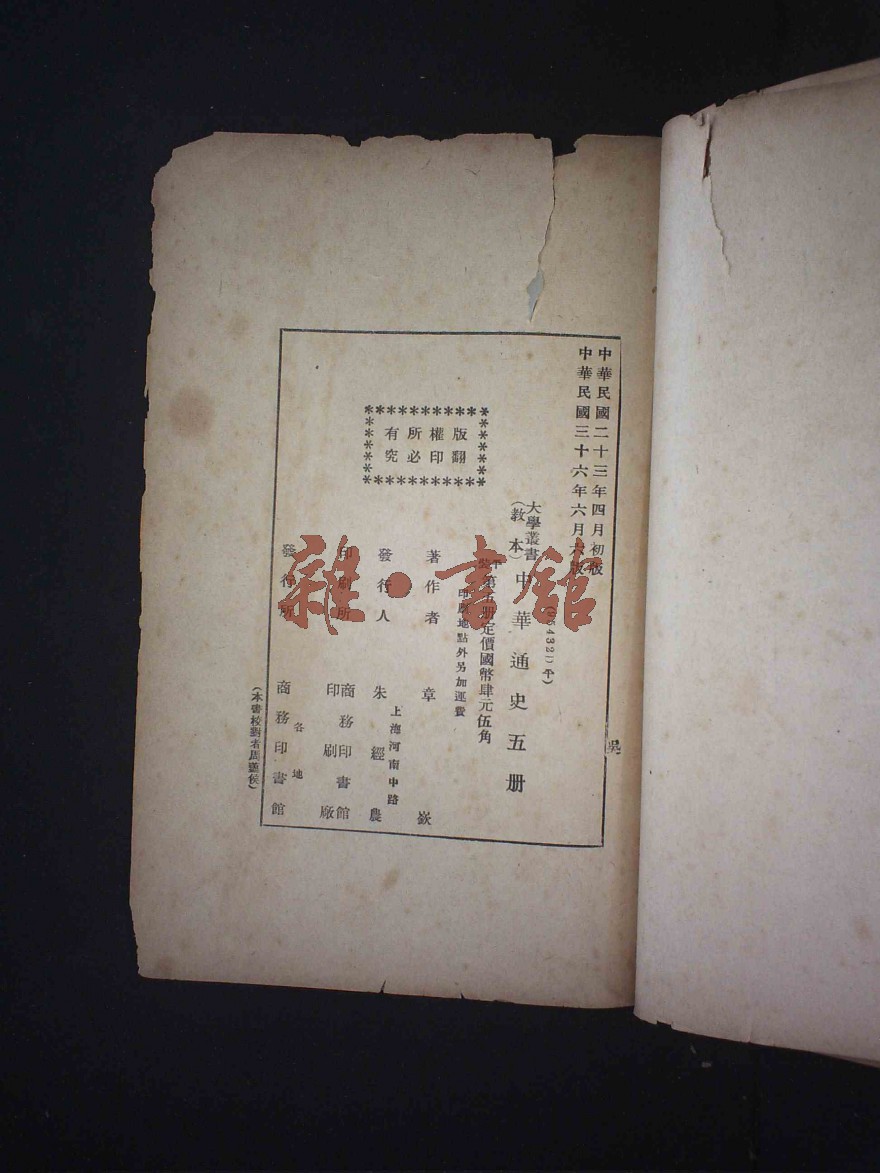 中華民國二十三年四月初版
中華民國三十六年六月六版
版權所有
翻印必究
大學叢書
(教本)
中華通史五册
第五册定價國幣肆元伍角
印刷地點外另加運費
著作者 章嶔
發行人 朱經農
上海河南中路
印刷所 商務印書館
印刷廠
發行所 商務印書館
各地
吳
雜·書館